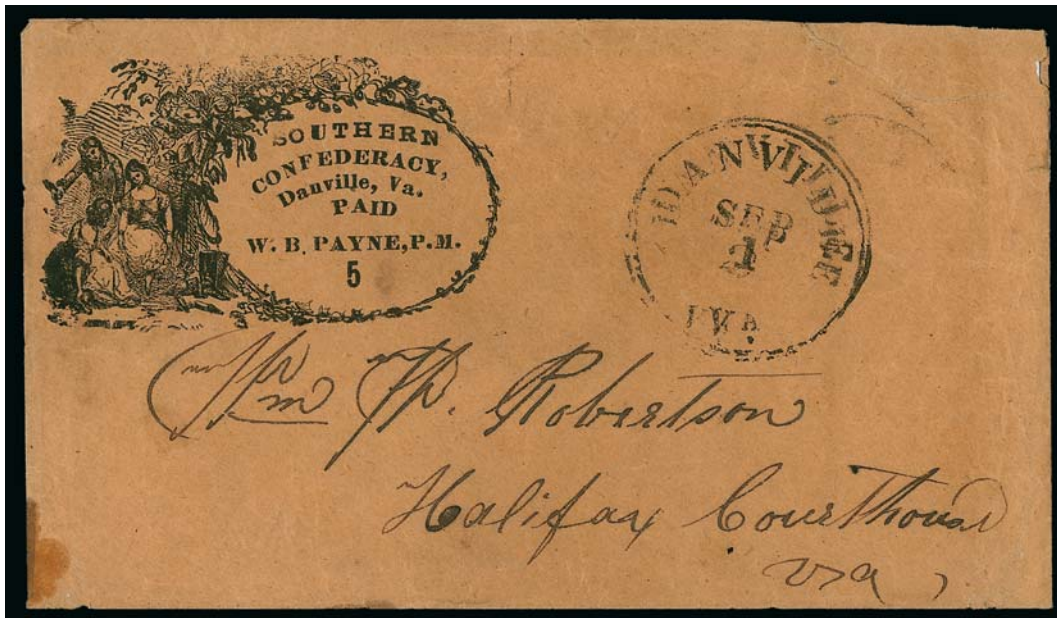 SOUTHERN
CONFEDERACY,
Danville, Va.
PAID
W. B. PAYNE, P.M.
5
DANVILLE
SEP
Va.
Wm W. Robertson
Halifax Court House
Va